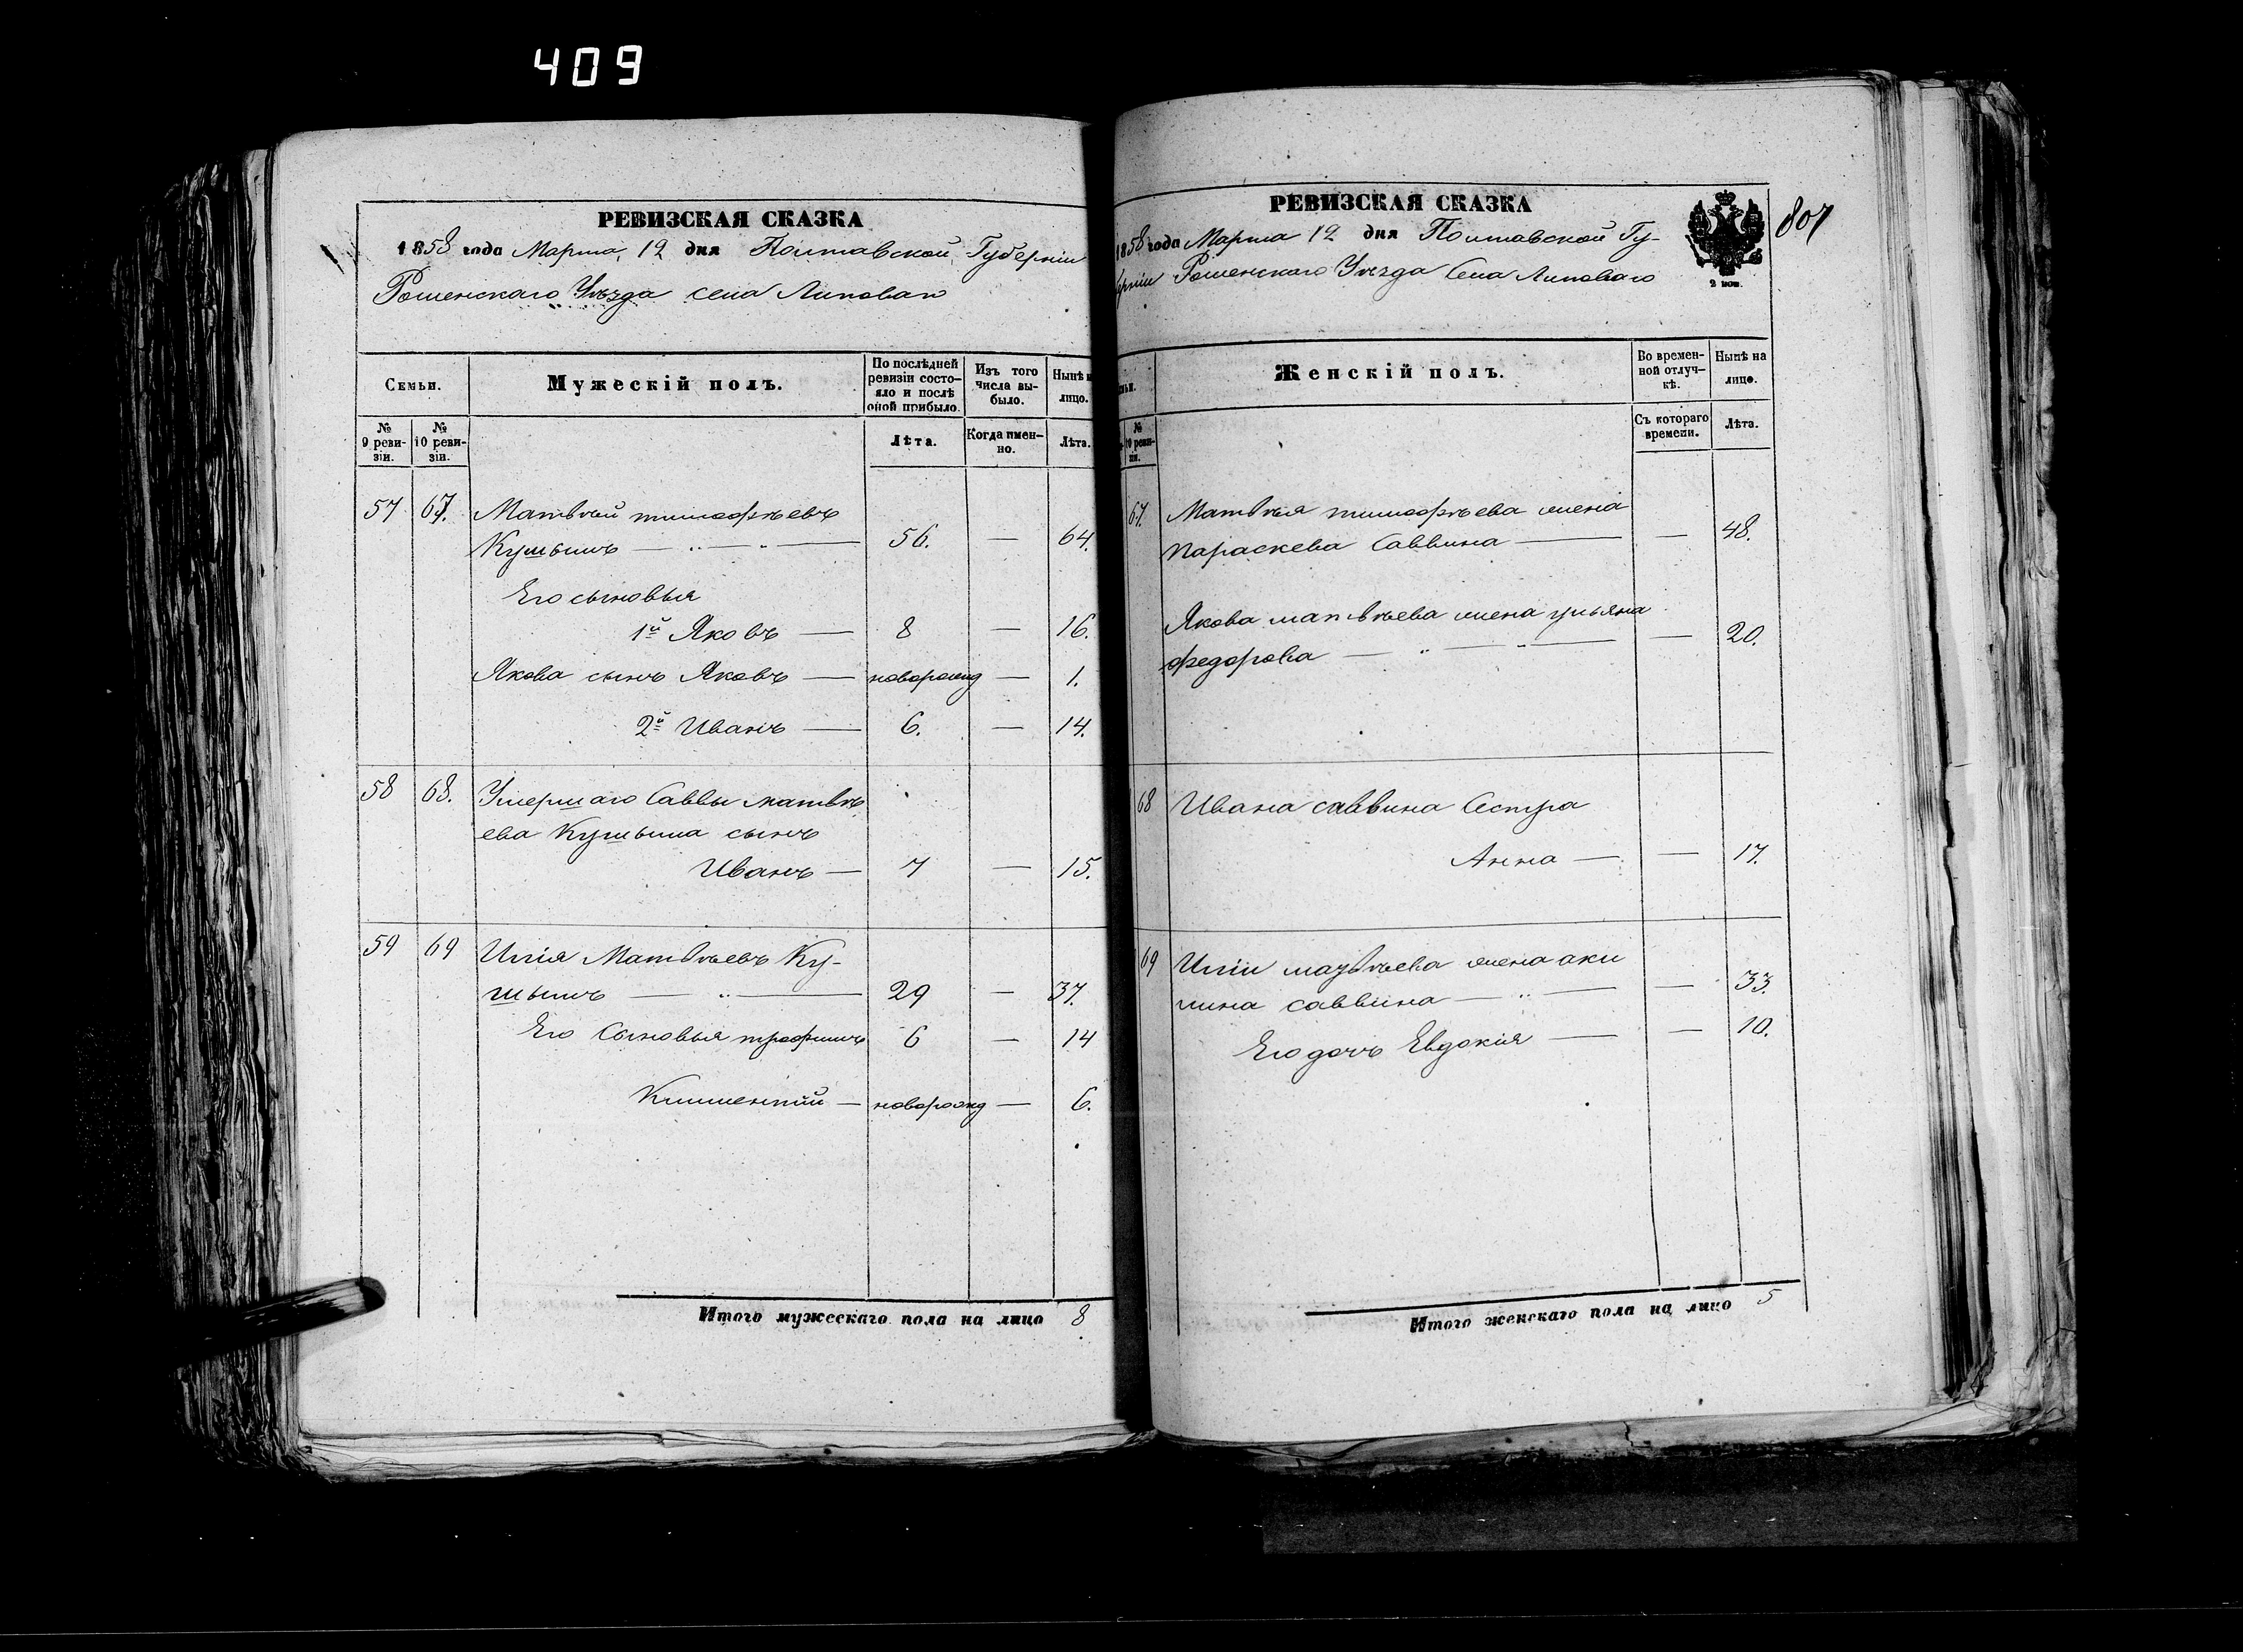 409
РЕВИЗСКАЯ СКАЗКА
1858 года Марта, 12 дня Полтавской Губерніи
Роменскаго Уѣзда села Липоваго
Семьи.
Мужескій полъ.
По послѣдней ревизіи состояло и послѣ оной прибыло.
Изъ того числа выбыло.
Нынѣ н лицо.
№ 9 ревизіи.
№ 10 ревизіи.
Лѣта.
Когда именно.
Лѣта.
57 67. Матвѣй тимофѣевъ
56. — 64.
Его сыновья
1й Яковъ — 8 — 16.
Якова сынъ Яковъ — поворожд — 1.
2й Иванъ — 6. — 14.
58 68. Умершаго Саввы матвѣ
ева сынъ
Иванъ — 7 — 15.
59 69 Илія Матвѣевъ Ку-
29 — 37.
Его Сыновья трофимъ 6 — 14
Климентий — новорожд — 6.
Итого мужескаго пола на лицо 8
РЕВИЗСКАЯ СКАЗКА
1858 года Марта 12 дня Полтавской Гу-
ерніи Роменскаго Уѣзда Села Липоваго
2 коп.
807
мьи.
Женскій полъ.
Во временной отлучкѣ.
Нынѣ на лицо.
№ 10 ревизіи.
Съ котораго времени.
Лѣта.
67. Матвѣя тимофѣева жена
параскева Саввина — — 48.
Якова матвѣева жена ульяна
федорова — — 20.
68 Ивана саввина Сестра
Анна — — 17.
69 Иліи матвѣева жена аки
лина саввина — — 33.
Его дочъ Евдокія — — 10.
Итого женскаго пола на лицо 5